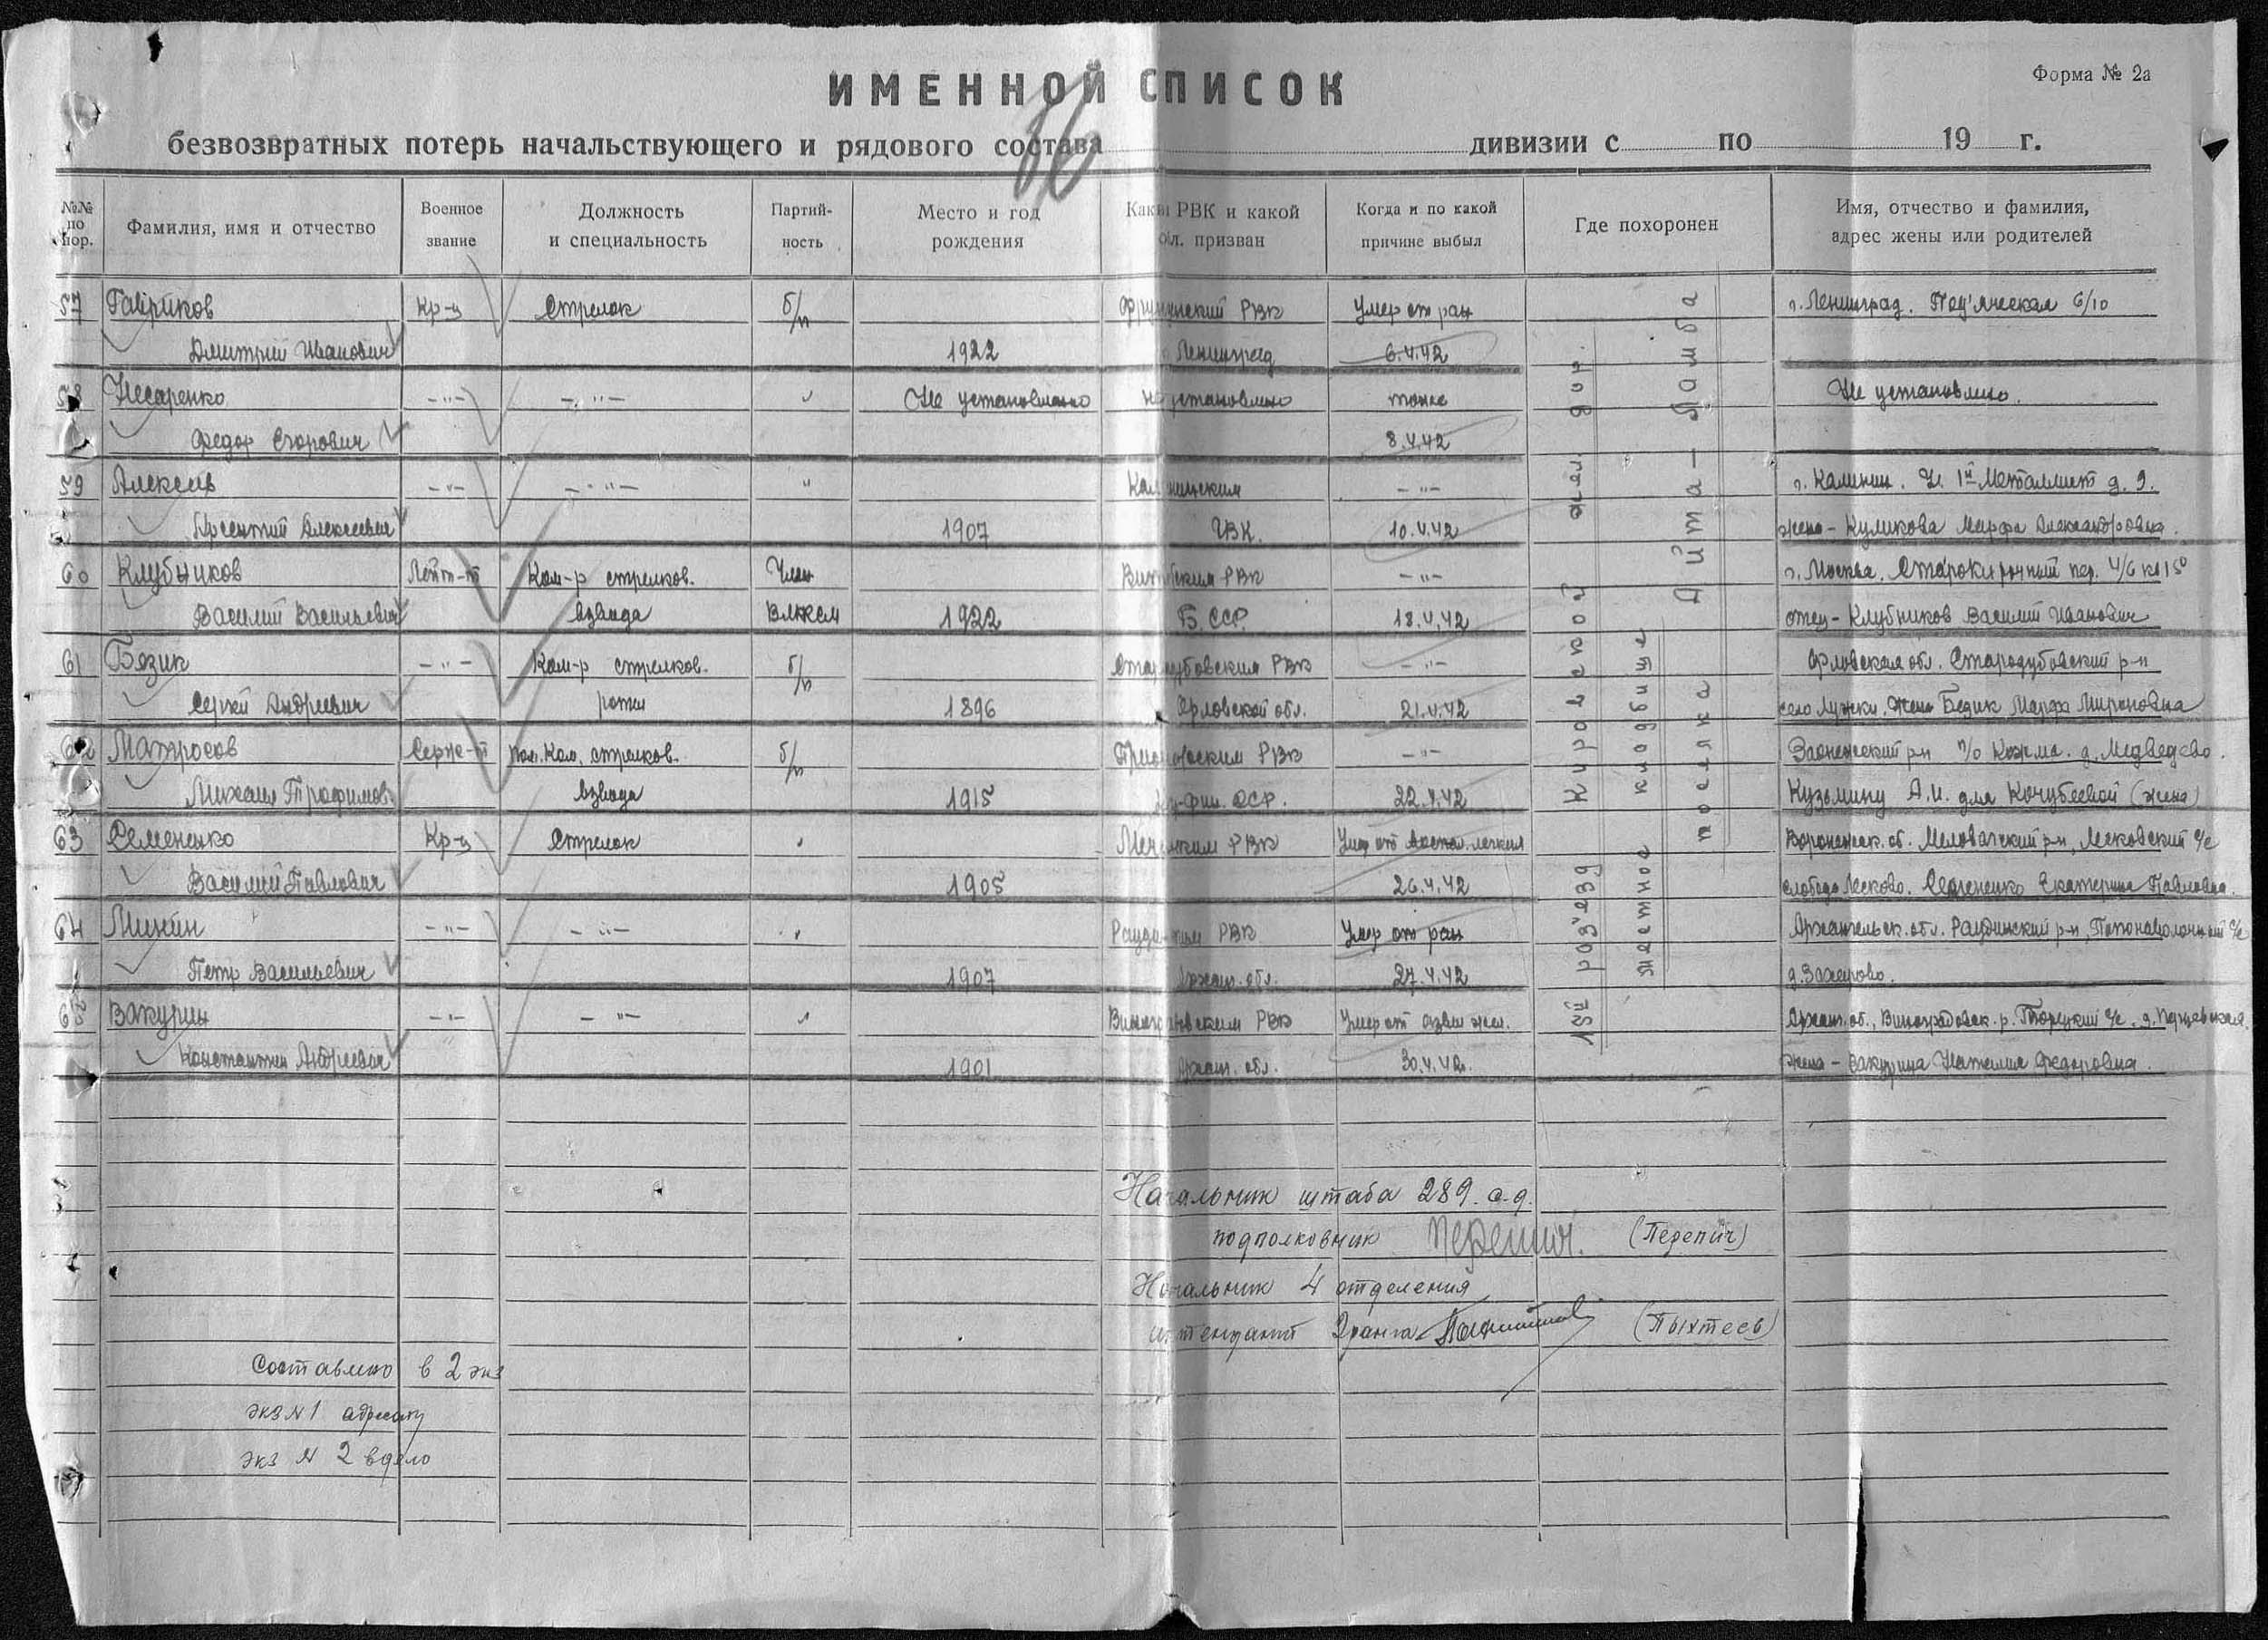 ИМЕННОЙ СПИСОК
Форма № 2а
безвозвратных потерь начальствующего и рядового состава дивизии с по 19 г.
№№ по пор.
Фамилия, имя и отчество
Военное звание
Должность и специальность
Партий-ность
Место и год рождения
Каким РВК и какой обл. призван
Когда и по какой причине выбыл
Где похоронен
Имя, отчество и фамилия, адрес жены или родителей
57 Гавриков Кр-ц Стрелок б/п Фрунзенский РВК Умер от ран г. Ленинград. Под'яческая 6/10
Дмитрий Иванович 1922 г. Ленинград 6.4.42
58 Несаренко -"- -"- " Не установлено не установлено тоже Не установлено.
Федор Егорович 8.4.42
59 Алексеев -"- -"- " Калининским -"- г. Калинин. Ул. 1й Металлист д. 9.
Арсентий Алексеевич 1907 ГВК. 10.4.42 жена - Куликова Марфа Александровна.
60 Клубников Лейт-т Ком-р стрелков. Член Витебским РВК -"- г. Москва. Старокирочный пер. 4/6 кв 150
Василий Васильевич взвода ВЛКСМ 1922 Б.ССР. 18.4.42 отец - Клубников Василий Иванович
61 Бозик -"- Ком-р стрелков. б/п Стародубовским РВК -"- Орловская обл. Стародубовский р-н
Сергей Андреевич роты 1896 Орловской обл. 21.4.42 село Лужки. Жена Бедик Марфа Мироновна
62 Матросов Серж-т пом. Ком. стрелков. б/п РВК -"- Заонежский р-н п/о Кажма. д. Медведево.
Михаил Трофимов. взвода 1915 фин. ССР. 22.4.42 Кузьмину А.И. для Кочубеевой (жена)
63 Семененко Кр-ц Стрелок " РВК Умер от воспал. легких Воронежск. об. Меловатский р-н, Лесковский с/с
Василий Павлович 1905 26.4.42 слобода Лесково. Семененко Екатерина Павловна.
64 Минин -"- -"- " РВК Умер от ран Архангельск. обл. р-н, с/с
Петр Васильевич 1907 Архан. обл. 27.4.42 д.
65 Вакурин -"- -"- " Виноградовским РВК Умер от язвы жел. Архан. об., Виноградовск. р.
Константин Андреевич 1901 Архан. обл. 30.4.42. жена - Вакурина Наталия Федоровна.
15й раз'езд Кировской жел. дор.
местное кладбище
поселка Айта-Ламба
Начальник штаба 289. с.д.
подполковник Перепич. (Перепич)
Начальник 4 отделения
интендант 2 ранга (Пыхтеев)
Составлено в 2 экз
экз N 1 адресату
экз N 2 в дело